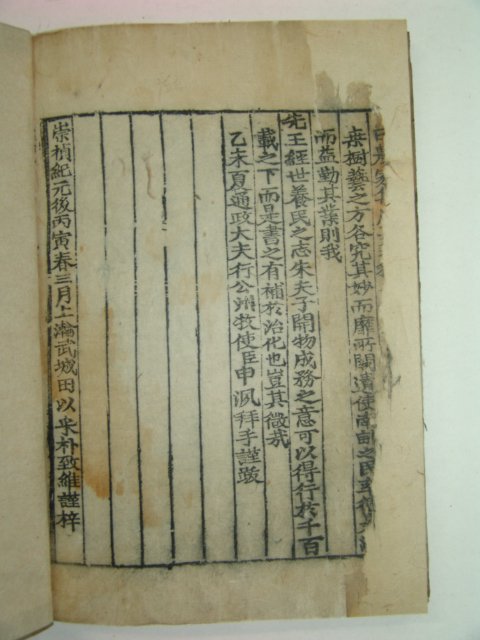 樹藝之方各究其妙而靡所闕遺使南畝之民
而益勤其業則我
先王經世養民之志朱夫子開物成務之意可以得行於千百
載之下而是書之有補於治化也豈其微哉
乙未夏通政大夫行公州牧使臣申洬拜手謹跋
崇禎紀元後丙寅春三月上澣武城田以采朴致維謹梓